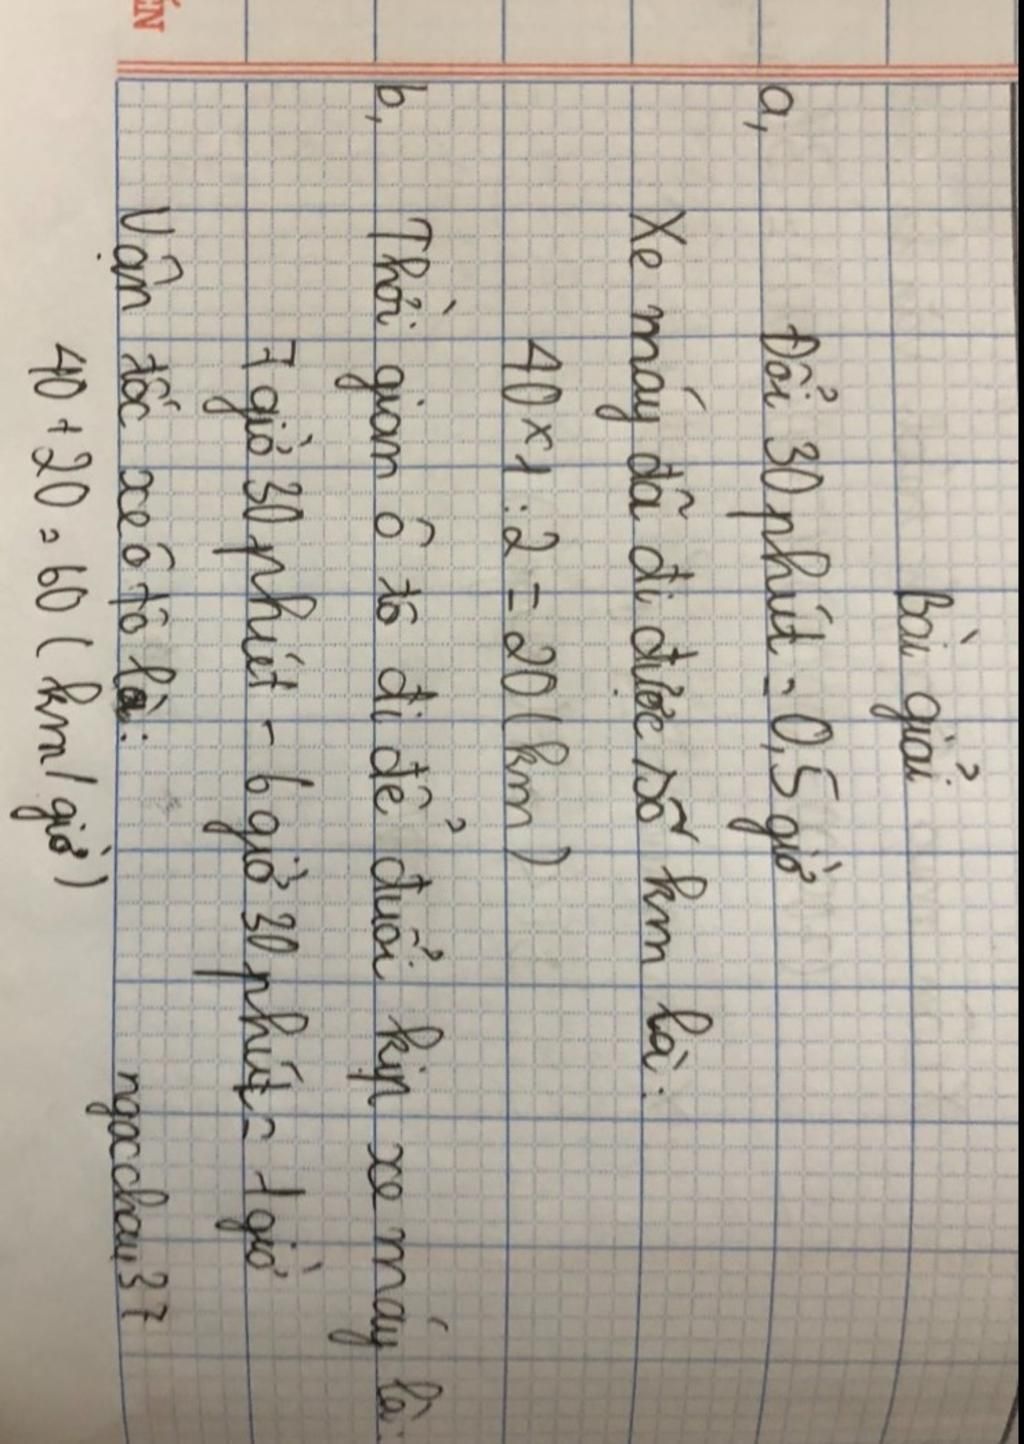 Bài giải
a, Đổi 30 phút = 0,5 giờ
Xe máy đã đi được số km là:
40 x 1 : 2 = 20 (km)
b, Thời gian ô tô đi để đuổi kịp xe máy là:
7 giờ 30 phút - 6 giờ 30 phút = 1 giờ
Vận tốc xe ô tô là:
40 + 20 = 60 (km/giờ)
ngocchau37